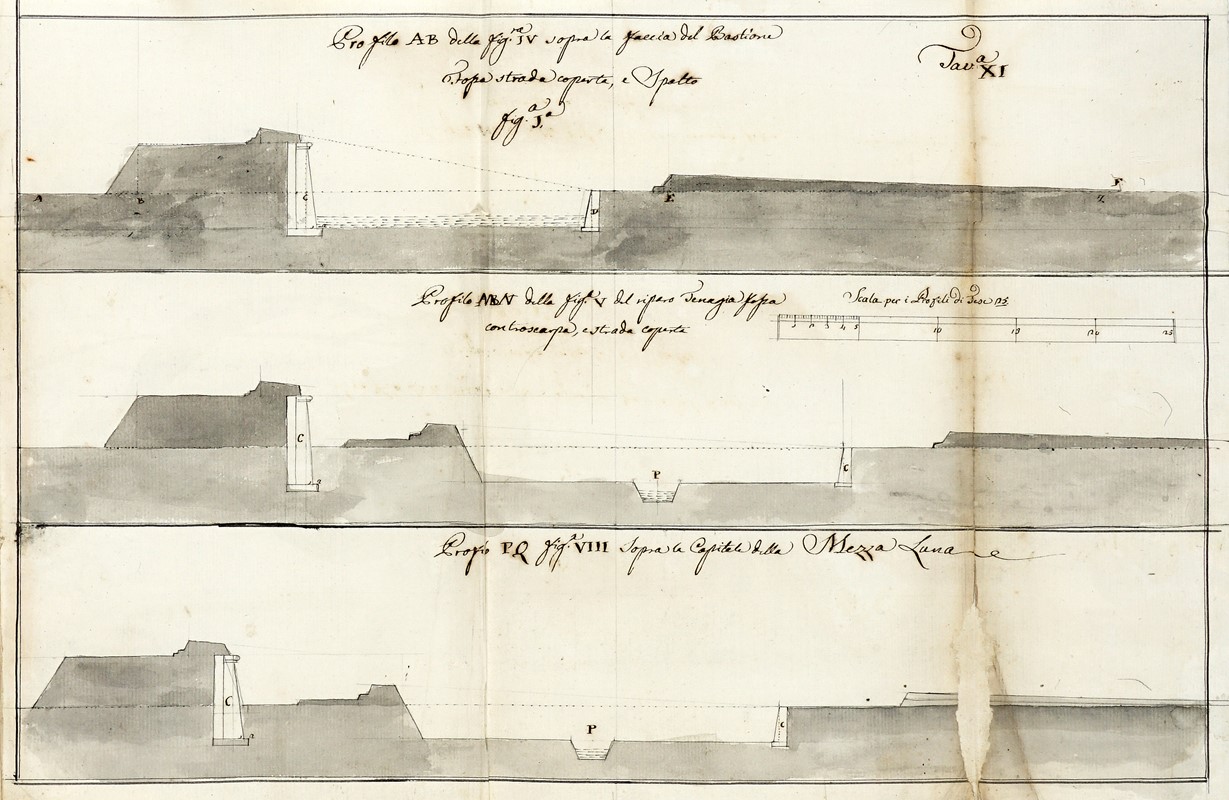 Profilo AB della fig.ra IV sopra la faccia del Bastione
Tav.a XI
Fossa strada coperta, e Spalto
fig.a I.a
A B C D E F Z
Profilo MN della fig.a V del riparo Tenaglia fossa
controscarpa, e strada coperta
Scala per i Profili di Tese 25
1 2 3 4 5 10 15 20 25
C P C
Profio PQ fig.a VIII Sopra la Capitale della Mezza Luna
C P C